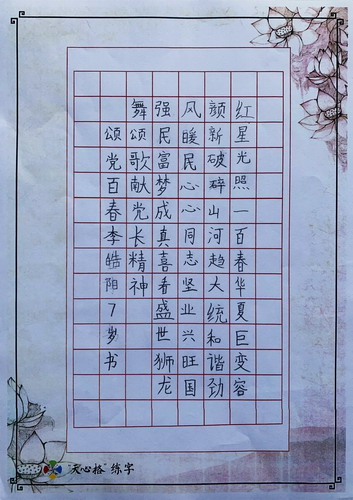 红星光照一百春华夏巨变容
颜新破碎山河趋大统和谐劲
风暖民心心同志坚业兴旺国
强民富梦成真喜看盛世狮龙
舞颂歌献党长精神
颂党百春李皓阳7岁书
天心格 练字